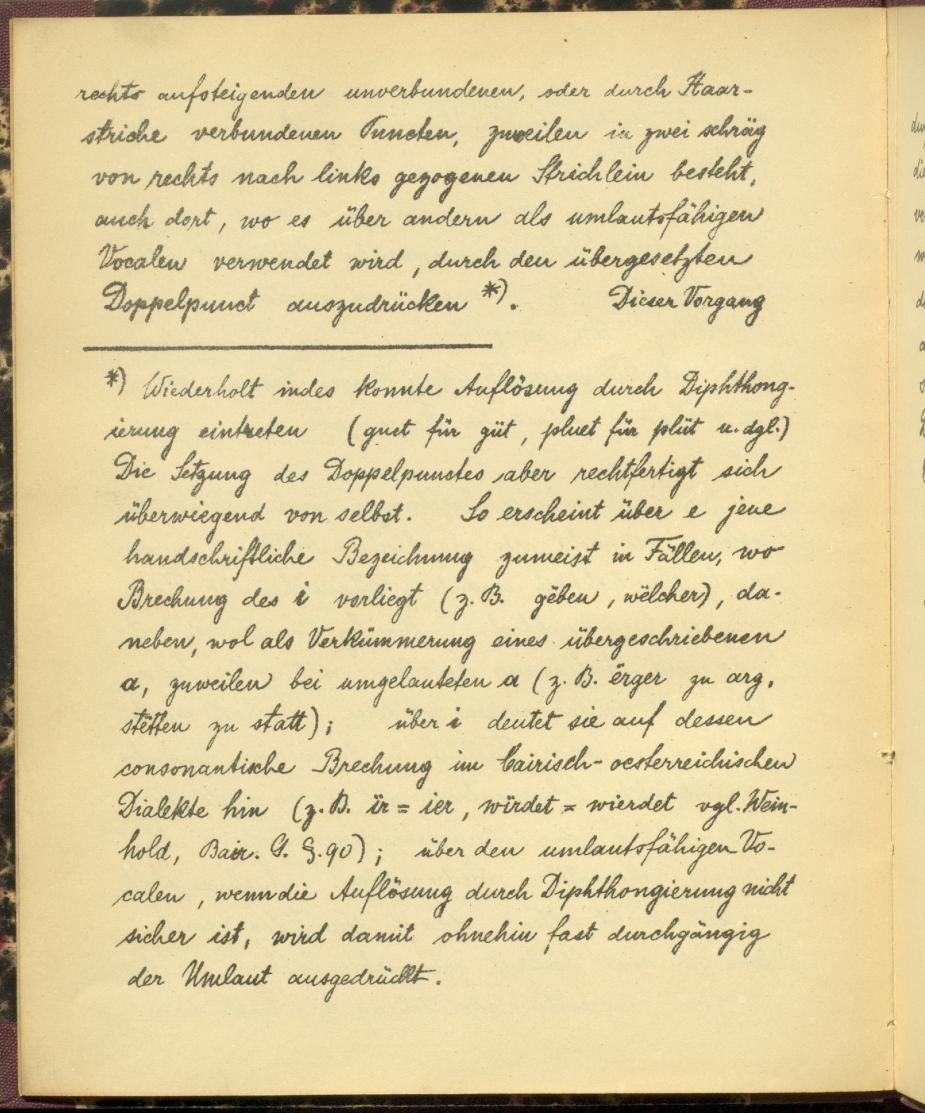 rechts aufsteigenden unverbundenen, oder durch Haar-
striche verbundenen Puncten, zuweilen in zwei schräg
von rechts nach links gezogenen Strichlein besteht,
auch dort, wo es über andern als umlautsfähigen
Vocalen verwendet wird, durch den übergesetzten
Doppelpunct auszudrücken *). Dieser Vorgang
*) Wiederholt indes konnte Auflösung durch Diphthong-
ierung eintreten (guet für güt, pluet für plüt u. dgl.)
Die Setzung des Doppelpunctes aber rechtfertigt sich
überwiegend von selbst. So erscheint über e jene
handschriftliche Bezeichnung zumeist in Fällen, wo
Brechung des i vorliegt (z. B. gëben, wëlcher), da-
neben, wol als Verkümmerung eines übergeschriebenen
a, zuweilen bei umgelauteten a (z. B. ërger zu arg,
stëtten zu statt); über i deutet sie auf dessen
consonantische Brechung im bairisch-oesterreichischen
Dialekte hin (z. B. ïr = ier, wïrdet = wierdet vgl. Wein-
hold, Bair. G. §. 90); über den umlautsfähigen Vo-
calen, wenn die Auflösung durch Diphthongierung nicht
sicher ist, wird damit ohnehin fast durchgängig
der Umlaut ausgedrückt.